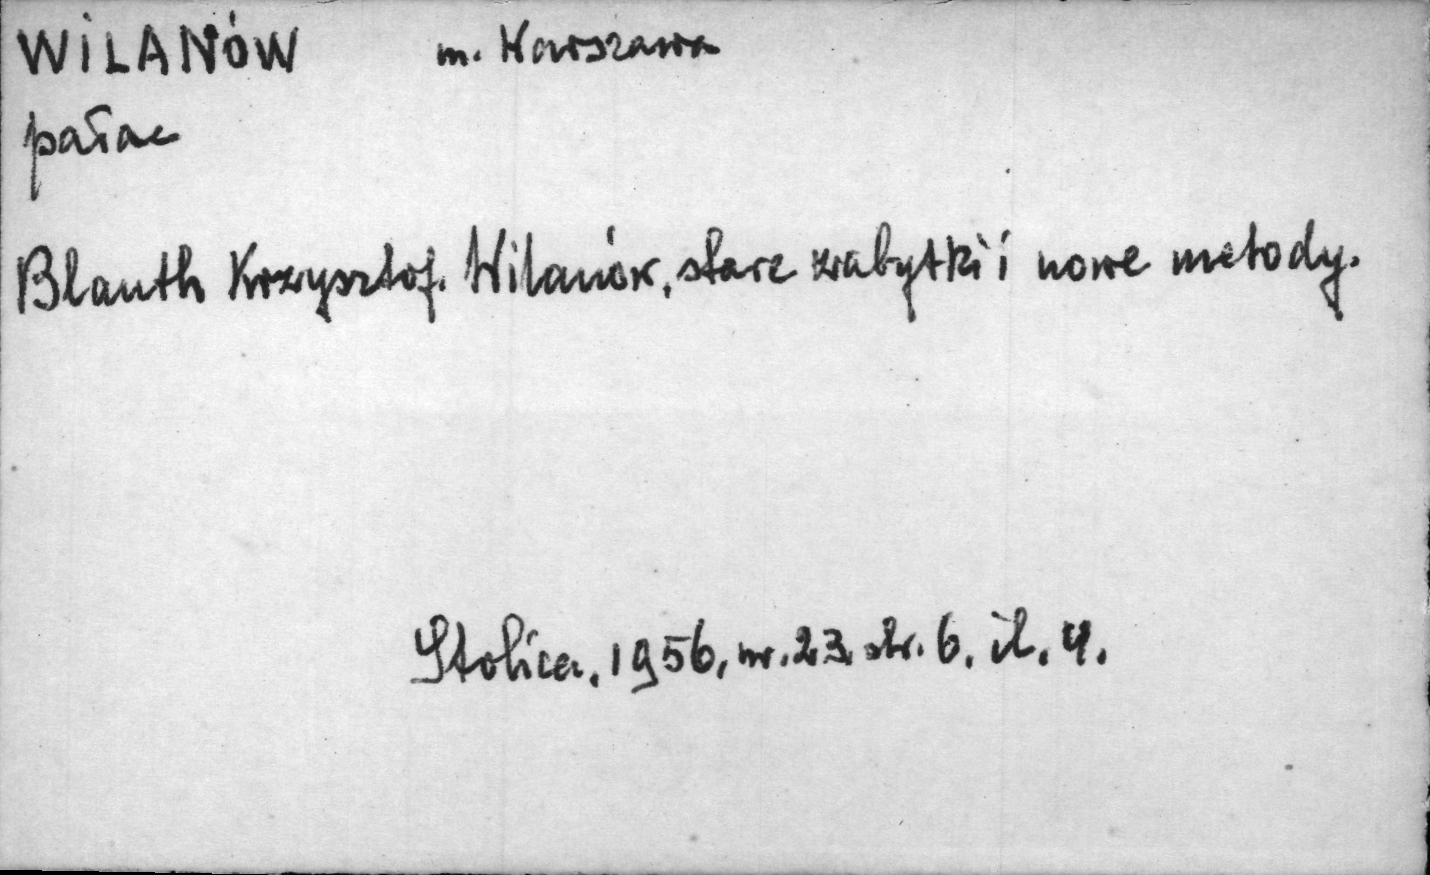 WILANÓW m. Warszawa
pałac
Blauth Krzysztof. Wilanów, stare zabytki i nowe metody.
Stolica, 1956, nr. 23. str. 6, il. 4.